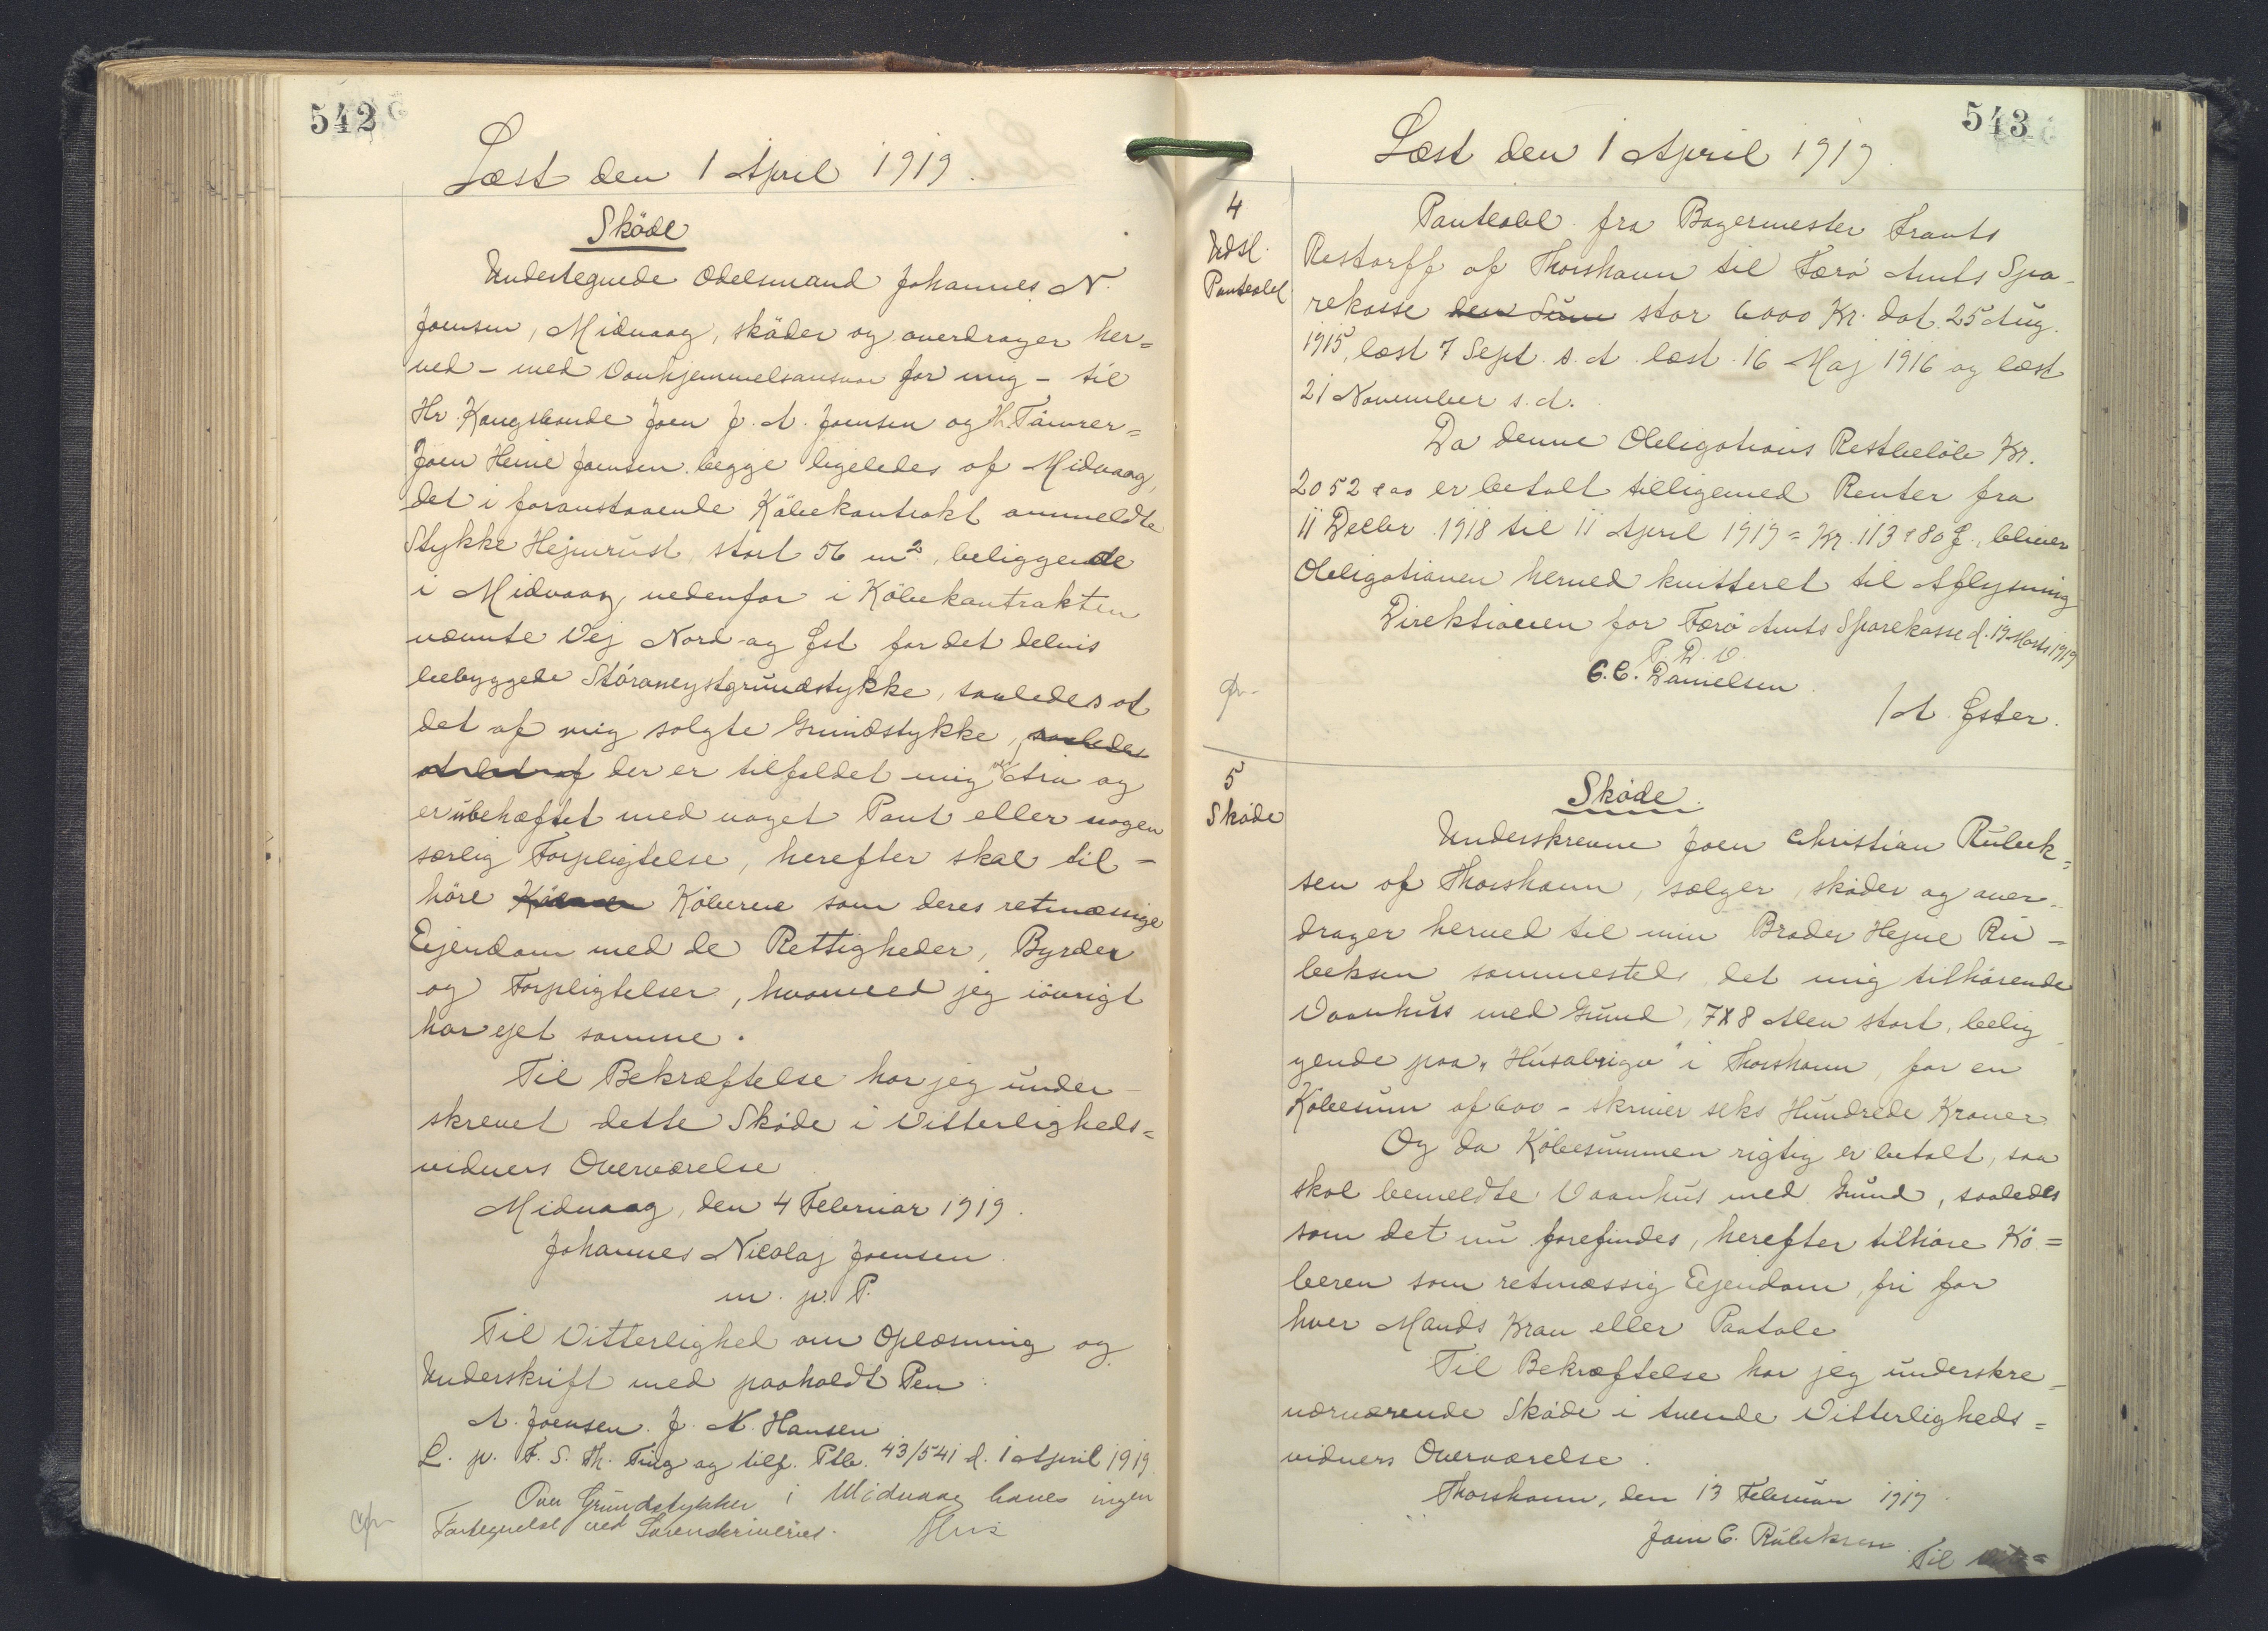 542
Læst den 1 April 1919.
Sköde
Undertegnede Odelsmand Johannes N.
Joensen, Midvaag, sköder og overdrager her=
ved - med Vanhjemmelsansvar for mig - til
Hr. Kongsbonde Joen J. A. Joensen og H. Tömrer=
Joen Heine Joensen begge ligeledes af Midvaag,
det i foranstaaende Köbekontrakt ommeldte
Stykke Hejmrust, stort 56 m², beliggende
i Midvaag, nedenfor i Köbekontrakten
nævnte Vej Nord og Øst for det delvis
bebyggede Stóraneystgrundstykke, saaledes at
det af mig solgte Grundstykke, saaledes
at det af der er tilfaldet mig ved Arv og
er übehæftet med noget Pant eller nogen
særlig Forpligtelse, herefter skal til-
höre Köberne som deres retmæssige
Ejendom med de Rettigheder, Byrder
og Forpligtelser, hvormed jeg iövrigt
har ejet samme.
Til Bekræftelse har jeg under-
skrevet dette Sköde i Vitterligheds=
vidners Overværelse
Midvaag, den 4 Februar 1919.
Johannes Nicolaj Joensen.
m. p. P.
Til Vitterlighed om Oplæsning og
Underskrift med paaholdt Pen:
A. Joensen. J. N. Hansen
L. p. F. S. Th. Ting og tilf. Ptb. 43/541 d. 1 April 1919.
Over Grundstykker i Midvaag haves ingen
Fortegnelse ved Sorenskriveriet.
543
Læst den 1 April 1919.
4
Udsl.
Panteobl.
Panteobl. fra Bagermester Frants
Restorff af Thorshavn til Færö Amts Spa-
rekasse den Sum stor 6000 Kr. dat. 25 Aug.
1915, læst 7 Sept. s. A. læst 16 Maj 1916 og læst
21 November s. A.
Da denne Obligations Restbelöb Kr.
2052 e 00 er betalt tilligemed Renter fra
11 Decbr 1918 til 11 April 1919 = Kr. 113 e 80 Ø., bliver
Obligationen herved kvitteret til Aflysning
Direktionen for Færö Amts Sparekasse d. 19 Marts 1919
P. D. V.
C. C. Danielsen.
/A. Øster.
5
Sköde
Sköde.
Underskrevne Joen Christian Rubek=
sen af Thorshavn, sælger, sköder og over-
drager herved til min Broder Hejne Ru-
beksen sammesteds det mig tilhörende
Vaanhus med Grund, 7x8 Alen stort, belig
gende paa „Húsabrigv" i Thorshavn, for en
Köbesum af 600 - skriver seks Hundrede Kroner
Og da Köbesummen rigtig er betalt, saa
skal bemeldte Vaanhus med Grund, saaledes
som det nu forefindes, herefter tilhöre Kö=
beren som retmæssig Ejendom, fri for
hver Mands Krav eller Paatale
Til Bekræftelse har jeg underskre-
nærværende Sköde i tvende Vitterligheds=
vidners Overværelse.
Thorshavn, den 13 Februar 1919.
Joen C. Rubeksen.
Til Vit=